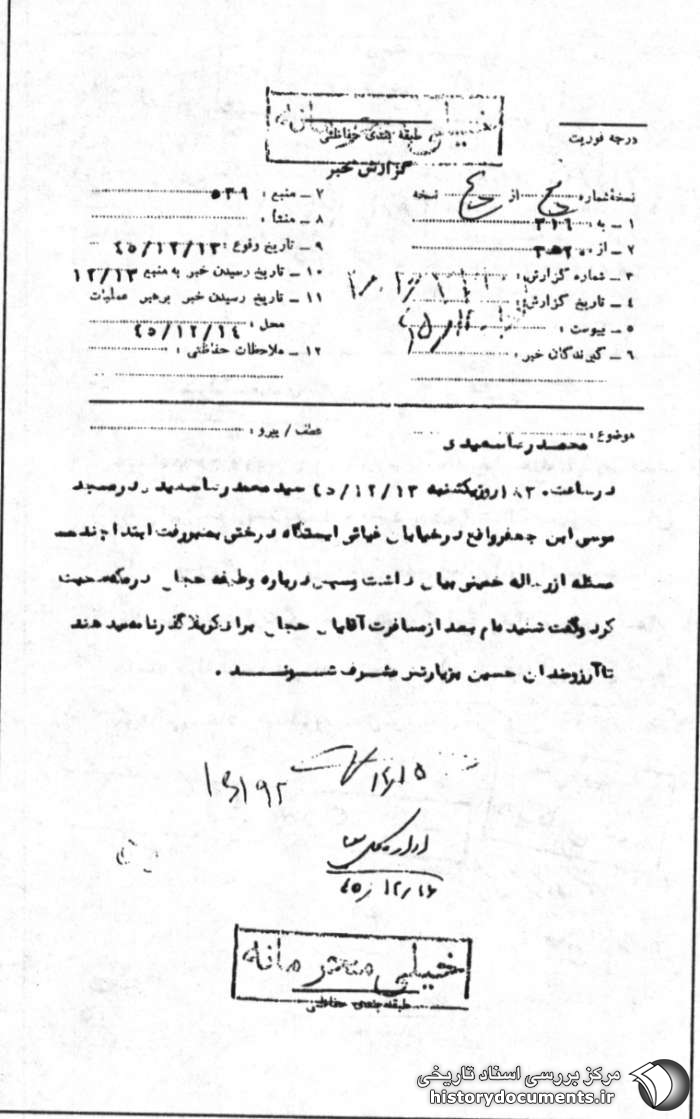 خیلی محرمانه
طبقه بندی حفاظتی
درجه فوریت
گزارش خبر
نسخهٔ شماره از نسخه
۱ ـ به : ۳۱۶
۲ ـ از
۳ ـ شماره گزارش :
۴ ـ تاریخ گزارش :
۵ ـ پیوست :
۶ ـ گیرندگان خبر :
۷ ـ منبع : ۵۳۹
۸ ـ منشأ :
۹ ـ تاریخ وقوع : ۴۵/۱۲/۱۳
۱۰ ـ تاریخ رسیدن خبر به منبع ۱۲/۱۳
۱۱ ـ تاریخ رسیدن خبر برهبر عملیات
محل : ۴۵/۱۲/۱۴
۱۲ ـ ملاحظات حفاظتی :
موضوع : محمدرضا سعیدی
عطف / پیرو :
در ساعت روز یکشنبه ۴۵/۱۲/۱۳ سید محمدرضا سعیدی در مسجد
موسی ابن جعفر واقع در خیابان غیاثی ایستگاه درختی بمنبر رفت ابتدا چند
مسئله از رساله خمینی بیان داشت و سپس درباره وظیفه حجاج در مکه صحبت
کرد و گفت شنیده‌ام بعد از مسافرت آقایان حجاج برای کربلا گذرنامه میدهند
تا آرزومندان حسین بزیارتش مشرف شوند .
۴۵/۱۲/۱۶
خیلی محرمانه
طبقه بندی حفاظتی
مرکز بررسی اسناد تاریخی
historydocuments.ir